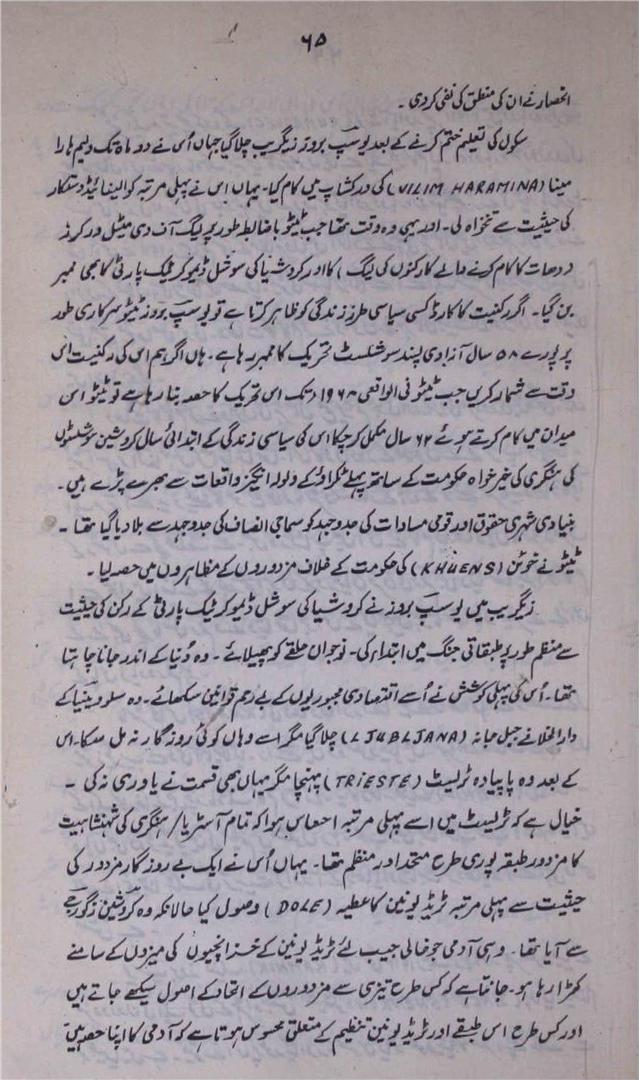 ۶۵
انحصار نے ان کی منطق کی نفی کر دی ۔
سکول کی تعلیم ختم کرنے کے بعد یوسپ بروز زیگریب چلا گیا جہاں اُس نے دو ماہ تک ولیم ہارا
مینا (VILIM HARAMINA) کی ورکشاپ میں کام کیا۔ یہاں اس نے پہلی مرتبہ کوالیفائیڈ دستکار
کی حیثیت سے تنخواہ لی۔ اور یہی وہ وقت تھا جب ٹیٹو باضابطہ طور پر لیگ آف دی میٹل ورکرز
(دھات کا کام کرنے والے کارکنوں کی لیگ) کا اور کروشیا کی سوشل ڈیموکریٹک پارٹی کا بھی ممبر
بن گیا۔ اگر رکنیت کا کارڈ کسی سیاسی طرزِ زندگی کو ظاہر کرتا ہے تو یوسپ بروز ٹیٹو سرکاری طور
پر پورے ۵۸ سال آزادی پسند سوشلسٹ تحریک کا ممبر رہا ہے۔ ہاں اگر ہم اس کی رکنیت اس
وقت سے شمار کریں جب ٹیٹو فی الواقعی ۱۹۶۸ء تک اس تحریک کا حصہ بنا رہا ہے تو ٹیٹو اس
میدان میں کام کرتے ہوئے ۶۲ سال مکمل کر چکا اس کی سیاسی زندگی کے ابتدائی سال کروشین سوشلسٹوں
کی ہنگری کی خیر خواہ حکومت کے ساتھ پہلے ٹکراؤ کے ولولہ انگیز واقعات سے بھرے پڑے ہیں۔
بنیادی شہری حقوق اور قومی مساوات کی جدوجہد کو سماجی انصاف کی جدوجہد سے ملا دیا گیا تھا ۔
ٹیٹو نے خوئن (KHUENS) کی حکومت کے خلاف مزدوروں کے مظاہروں میں حصہ لیا ۔
زیگریب میں یوسپ بروز نے کروشیا کی سوشل ڈیموکریٹک پارٹی کے رکن کی حیثیت
سے منظم طور پر طبقاتی جنگ میں ابتداء کی۔ نوجوان حلقے کو پھیلائے ۔ وہ دُنیا کے اندر جانا چاہتا
تھا۔ اُس کی پہلی کوشش نے اُسے اقتصادی مجبوریوں کے بے رحم قوانین سکھائے۔ وہ سلووینیا کے
دارالخلافے جبل جانہ (LJUBLJANA) چلا گیا مگر اسے وہاں کوئی روزگار نہ مل سکا۔ اس
کے بعد وہ پا پیادہ ٹرلیسٹ (TRIESTE) پہنچا مگر یہاں بھی قسمت نے یاوری نہ کی ۔
خیال ہے کہ ٹرلیسٹ میں اسے پہلی مرتبہ احساس ہوا کہ تمام آسٹریا/ہنگری کی شہنشاہیت
کا مزدور طبقہ پوری طرح متحد اور منظم تھا۔ یہاں اُس نے ایک بے روزگار مزدور کی
حیثیت سے پہلی مرتبہ ٹریڈ یونین کا عطیہ (DOLE) وصول کیا حالانکہ وہ کروشین زگورجے
سے آیا تھا۔ وہی آدمی جو خالی جیب لئے ٹریڈ یونین کے خزانچیوں کی میزوں کے سامنے
کھڑا رہا ہو۔ جانتا ہے کہ کس طرح تیزی سے مزدوروں کے اتحاد کے اصول سیکھے جاتے ہیں
اور کس طرح اس طبقے اور ٹریڈ یونین تنظیم کے متعلق محسوس ہوتا ہے کہ آدمی کا اپنا حصہ ہیں